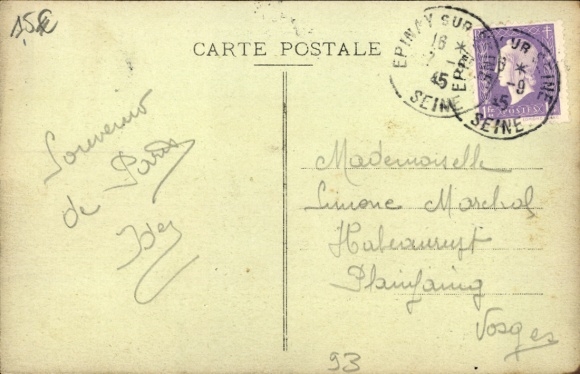 15€
CARTE POSTALE
EPINAY SUR SEINE
16 *
-9
45
SEINE
POSTES
Souvenir
de Paris
Mademoiselle
Simone Marchal
Habeaurupt
Plainfaing
Vosges
93